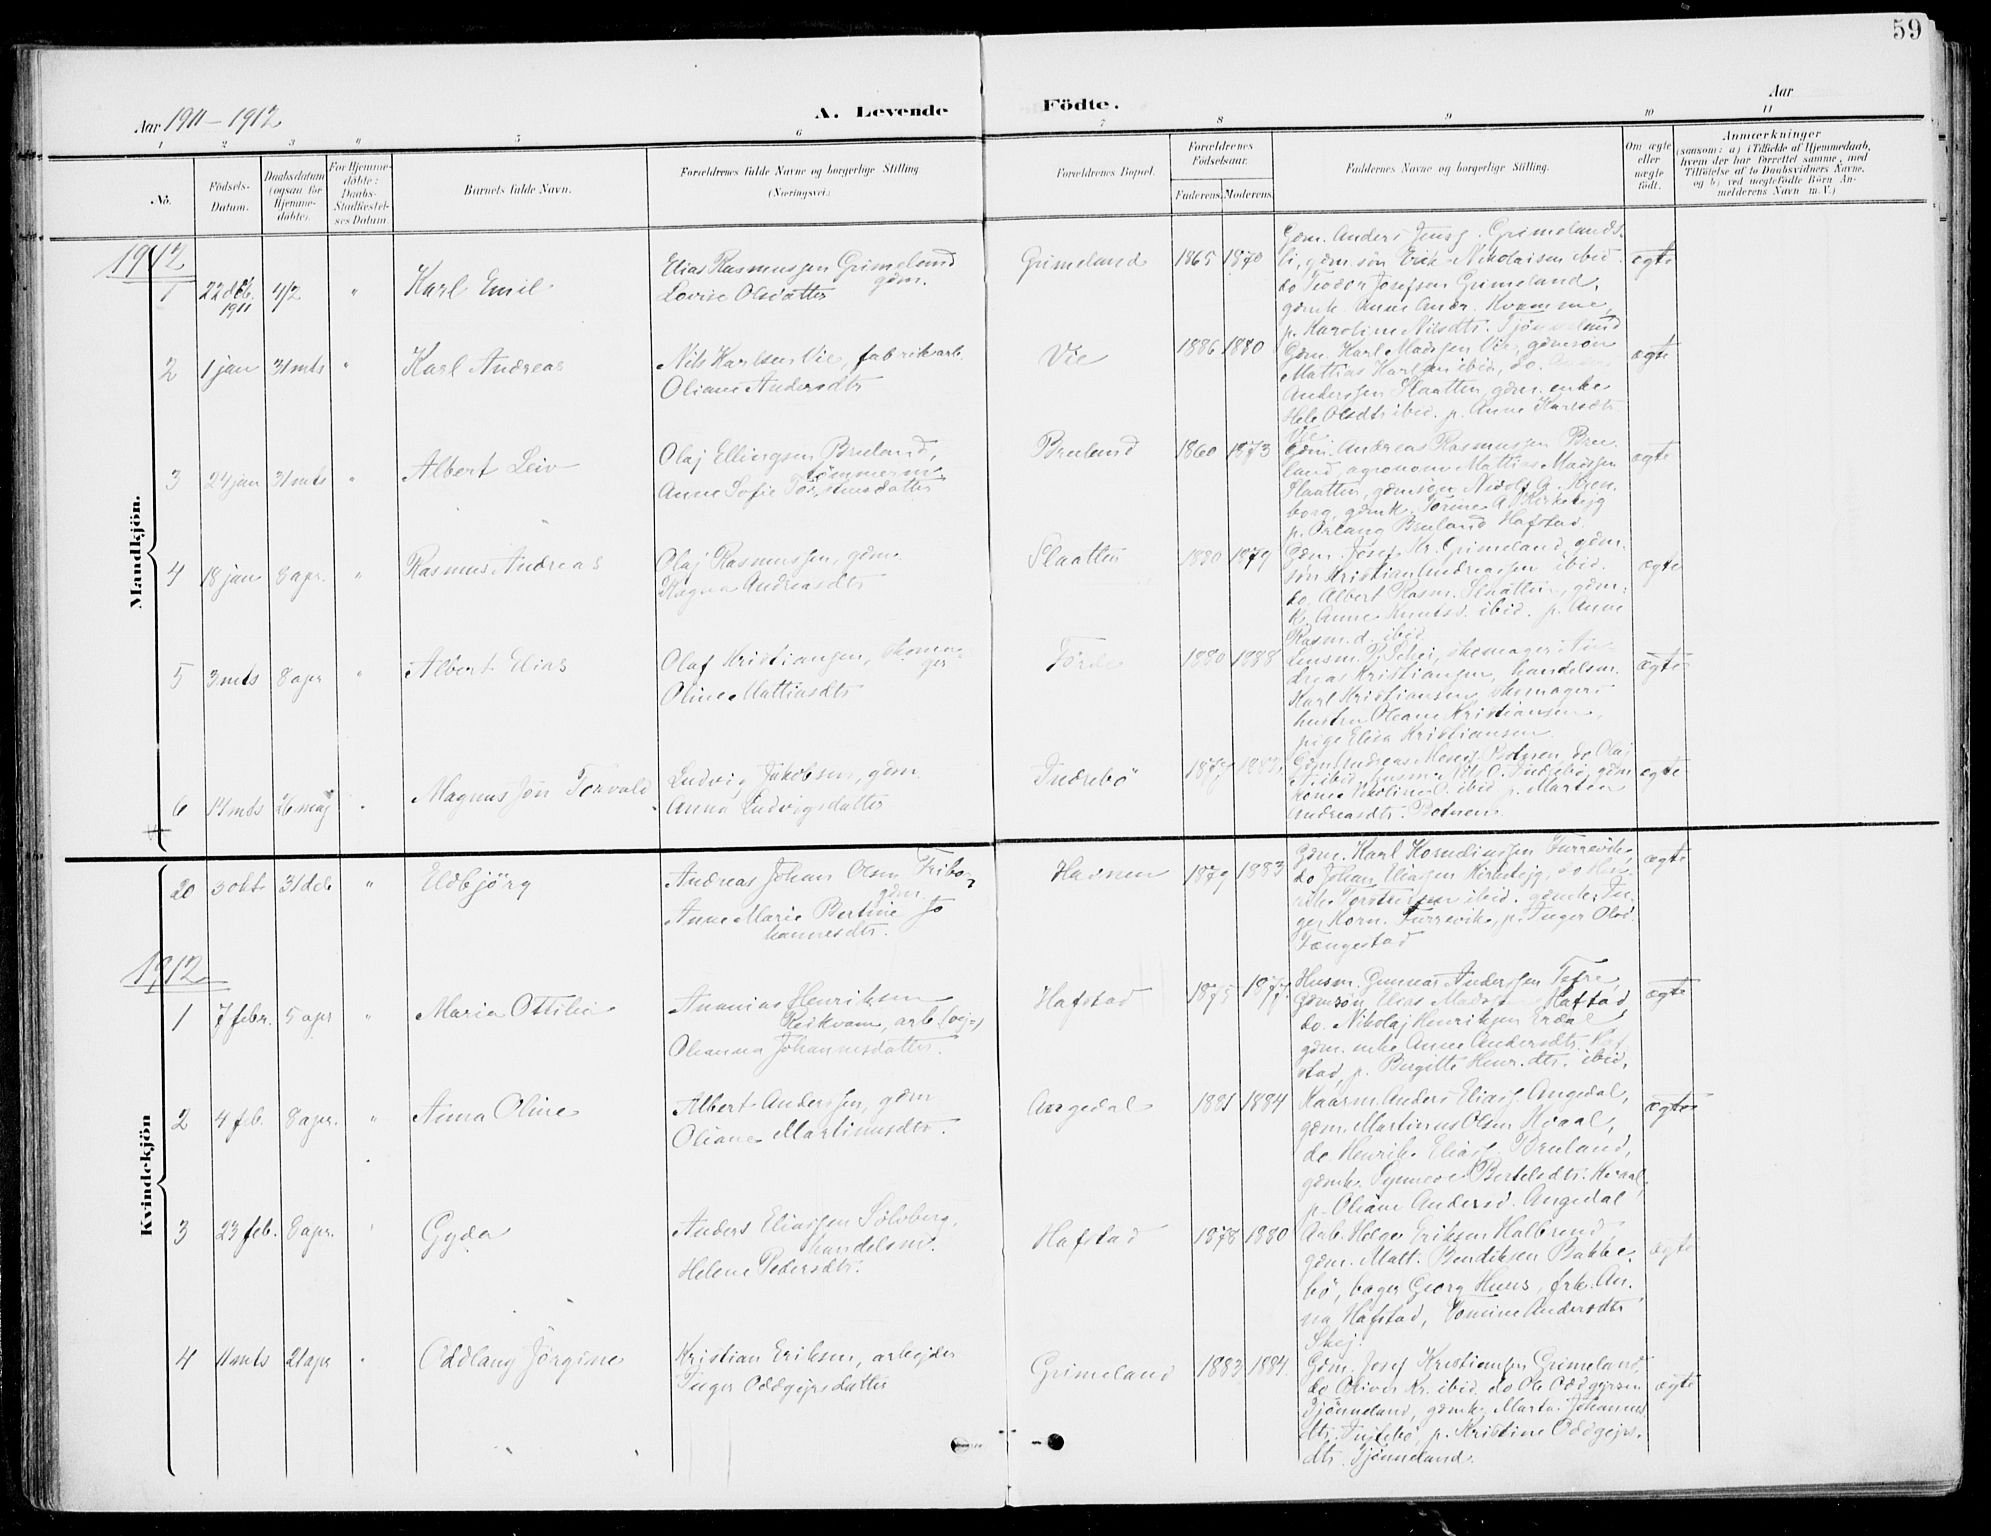 59
Aar 1911-1912
A. Levende
Födte.
Aar
1 2 3 " 5 6 7 8 9 10 11
No.
Födsels-Datum.
Daabsdatum (ogsaa for Hjemmedöbte).
For Hjemmedöbte: Daabs-Stadfæstelses Datum.
Barnets fulde Navn.
Forældrenes fulde Navne og borgerlige Stilling (Næringsvei.)
Forældrenes Bopæl.
Forældrenes Födselsaar.
Faderens. Moderens.
Faddernes Navne og borgerlige Stilling.
Om ægte eller uægte födt.
Anmærkninger
(saasom: a) i Tilfælde af Hjemmedaab, hvem der har forrettet samme, med Tilföielse af to Daabsvidners Navne, og b) ved uægtefödte Börn Anmelderens Navn m. V.)
Mandkjön.
1912
1 22 deb. 1911 4/2 " Karl Emil
Elias Rasmussen Grimelund gdm.
Lovise Olsdatter
Grimeland 1865 1870
Gdm. Anders Jensg. Grimelands-
li, gdm.søn Erik Nikolaisen ibid.
do Teodor Josefsen Grimeland,
gdmk. Anne Andr. Kvamme,
p. Karoline Nilsdtr. Tjønneland
ægte
2 1 jan 31 mts " Karl Andreas
Nils Karlsen Vie, fabrikarb.
Oliane Andersdtr
Vie 1886 1880
Gdm. Karl Madssen Vie, gdmsøn
Mattias Karlsen ibid, do.
Anderssen Slaatten, gdm. enke
Hele Olsdtr ibid. p. Anne Karlsdtr
Vie
ægte
3 24 jan 31 mts " Albert Leiv
Olaj Ellingsen Bruland,
tömmerm.
Anne Sofie Torstensdatter
Bruland 1860 1873
Gdm. Andreas Rasmussen Bru-
land, agronom Mattias Madssen
Slaatten, gdmsøn Nikols A. Kron-
borg, gdmk. Torine A. Kirkebejg
p. Erlaug Bruland Hafstad.
ægte
4 18 jan 8 apr. " Rasmus Andreas
Olaj Rasmussen, gdm
Ragna Andreasdtr
Slaatten 1880 1879
Gdm. Josef Kr. Grimeland, gdm.
søn Kristian Andreassen ibid.
do. Albert Rasm. Slaatten, gdm.
k. Anne Knutsd. ibid. p. Anne
Rasm.d. ibid
ægte
5 3 mts 8 apr " Albert Elias
Olaf Kristiansen, skoma-
ger
Oline Mattiasdtr
Førde 1880 1888
Lensm. P. Schei, skomager An-
dreas Kristiansen, handelsm.
Karl Kristiansen, skomager-
hustru Oliane Kristiansen,
pige Elisa Kristiansen
ægte
6 14 mts 26 maj " Magnus Jon Torvald
Ludvig Jakobsen, gdm.
Anna Ludvigsdatter
Indrebö 1877
Gdm Andreas Monss. Botnen, do Olaj
Andreasdtr. Botnen.
ægte
Kvindekjön
20 3 okt 31 deb " Eldbjörg
Andreas Johan Olsen Tribo,
gdm
Anne Marie Bertine Jo
hannesdtr.
Havnen 1879 1883
Gdm. Karl Korneliussen Furrevik,
do Johan Eliassen Kirkebejg, do Hen-
rik Torsteinsen ibid. gdmk. In-
ger Korn. Furrevik, p. Inger Olsd.
Fængestad
ægte
1912
1 7 febr. 5 apr " Maria Ottilie
Ananias Henriksen
Reikvam, arb. (vej-)
Oleanna Johannesdatter.
Hafstad 1875 1877
Husm. Gunnar Anderssen Tefre,
Gdmsøn Elias Madssen Hafstad,
do. Nikolaj Henriksen Erdal
gdm. enke Anne Andersdtr. Haf-
stad, p. Birgitte Henr.dtr. ibid.
ægte
2 4 feb. 8 apr. " Anna Oline
Albert Anderssen, gdm
Oliane Martinusdtr.
Angedal 1881 1884
Kaarm. Anders Eliass. Angedal,
gdm. Martinus Olsen Hvaal,
do. Henrik Eliass. Bruland,
gdmk. Synneve Bertelsdtr. Hvaal,
p. Oliane Andersd. Angedal
ægte
3 23 feb. 8 apr. " Gyda
Anders Eliassen Sölvberg,
handelsm.
Helene Pedersdtr.
Hafstad 1878 1880
Arb. Helge Eriksen Halbrend,
gdm. Matt. Bendiksen Bakke-
bö, bager Georg Huus, frk. An-
na Hafstad, Tomine Andersdtr
Skej.
ægte
4 11 mts 21 apr " Oddlaug Jörgine
Kristian Eriksen, arbejder
Inger Oddgejrsdatter
Grimeland 1883 1884.
Gdm. Josef Kristiansen Grimeland,
do Oliver Kr. ibid. do Ole Oddgejrsen
Tjönneland, gdmk. Marta Johannes
dtr. Indrebö, p. Kristine Oddgejrs-
dtr. Tjönneland.
ægte